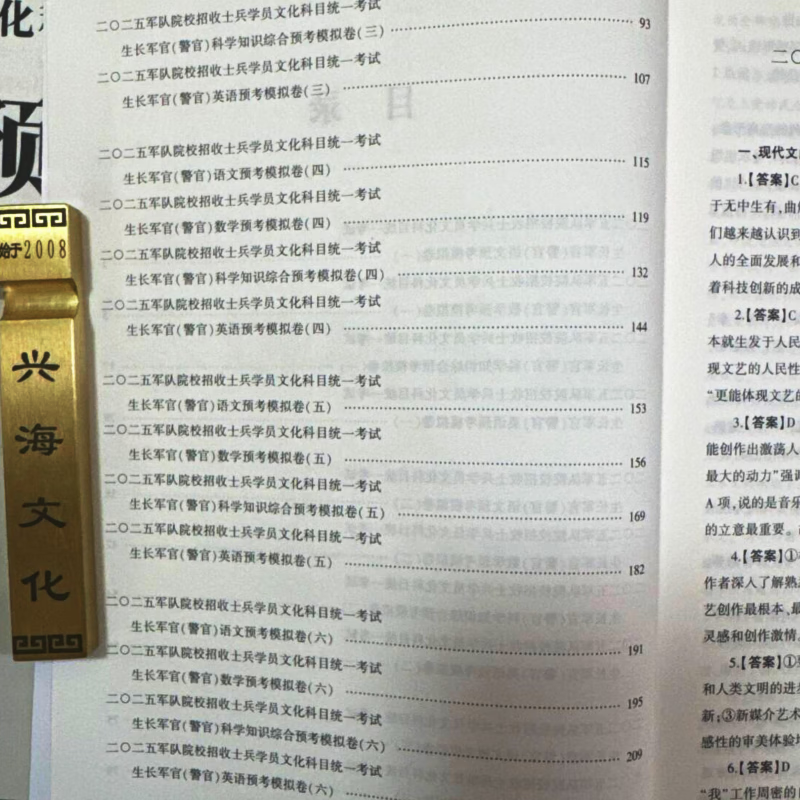 化
预
始于2008
兴
海
文
化
二〇二五军队院校招收士兵学员文化科目统一考试
生长军官(警官)科学知识综合预考模拟卷(三) 93
二〇二五军队院校招收士兵学员文化科目统一考试
生长军官(警官)英语预考模拟卷(三) 107
二〇二五军队院校招收士兵学员文化科目统一考试
生长军官(警官)语文预考模拟卷(四) 115
二〇二五军队院校招收士兵学员文化科目统一考试
生长军官(警官)数学预考模拟卷(四) 119
二〇二五军队院校招收士兵学员文化科目统一考试
生长军官(警官)科学知识综合预考模拟卷(四) 132
二〇二五军队院校招收士兵学员文化科目统一考试
生长军官(警官)英语预考模拟卷(四) 144
二〇二五军队院校招收士兵学员文化科目统一考试
生长军官(警官)语文预考模拟卷(五) 153
二〇二五军队院校招收士兵学员文化科目统一考试
生长军官(警官)数学预考模拟卷(五) 156
二〇二五军队院校招收士兵学员文化科目统一考试
生长军官(警官)科学知识综合预考模拟卷(五) 169
二〇二五军队院校招收士兵学员文化科目统一考试
生长军官(警官)英语预考模拟卷(五) 182
二〇二五军队院校招收士兵学员文化科目统一考试
生长军官(警官)语文预考模拟卷(六) 191
二〇二五军队院校招收士兵学员文化科目统一考试
生长军官(警官)数学预考模拟卷(六) 195
二〇二五军队院校招收士兵学员文化科目统一考试
生长军官(警官)科学知识综合预考模拟卷(六) 209
二〇二五军队院校招收士兵学员文化科目统一考试
生长军官(警官)英语预考模拟卷(六)
二〇
一、现代文
1.【答案】C
于无中生有,曲
们越来越认识到
人的全面发展和
着科技创新的成
2.【答案】C
本就生发于人民
现文艺的人民性
“更能体现文艺的
3.【答案】D
能创作出激荡人
最大的动力”强调
A项,说的是音乐
的立意最重要。
4.【答案】①
作者深入了解熟
艺创作最根本、最
灵感和创作激情。
5.【答案】①
和人类文明的进
新;③新媒介艺术
感性的审美体验
6.【答案】D
“我”工作周密的